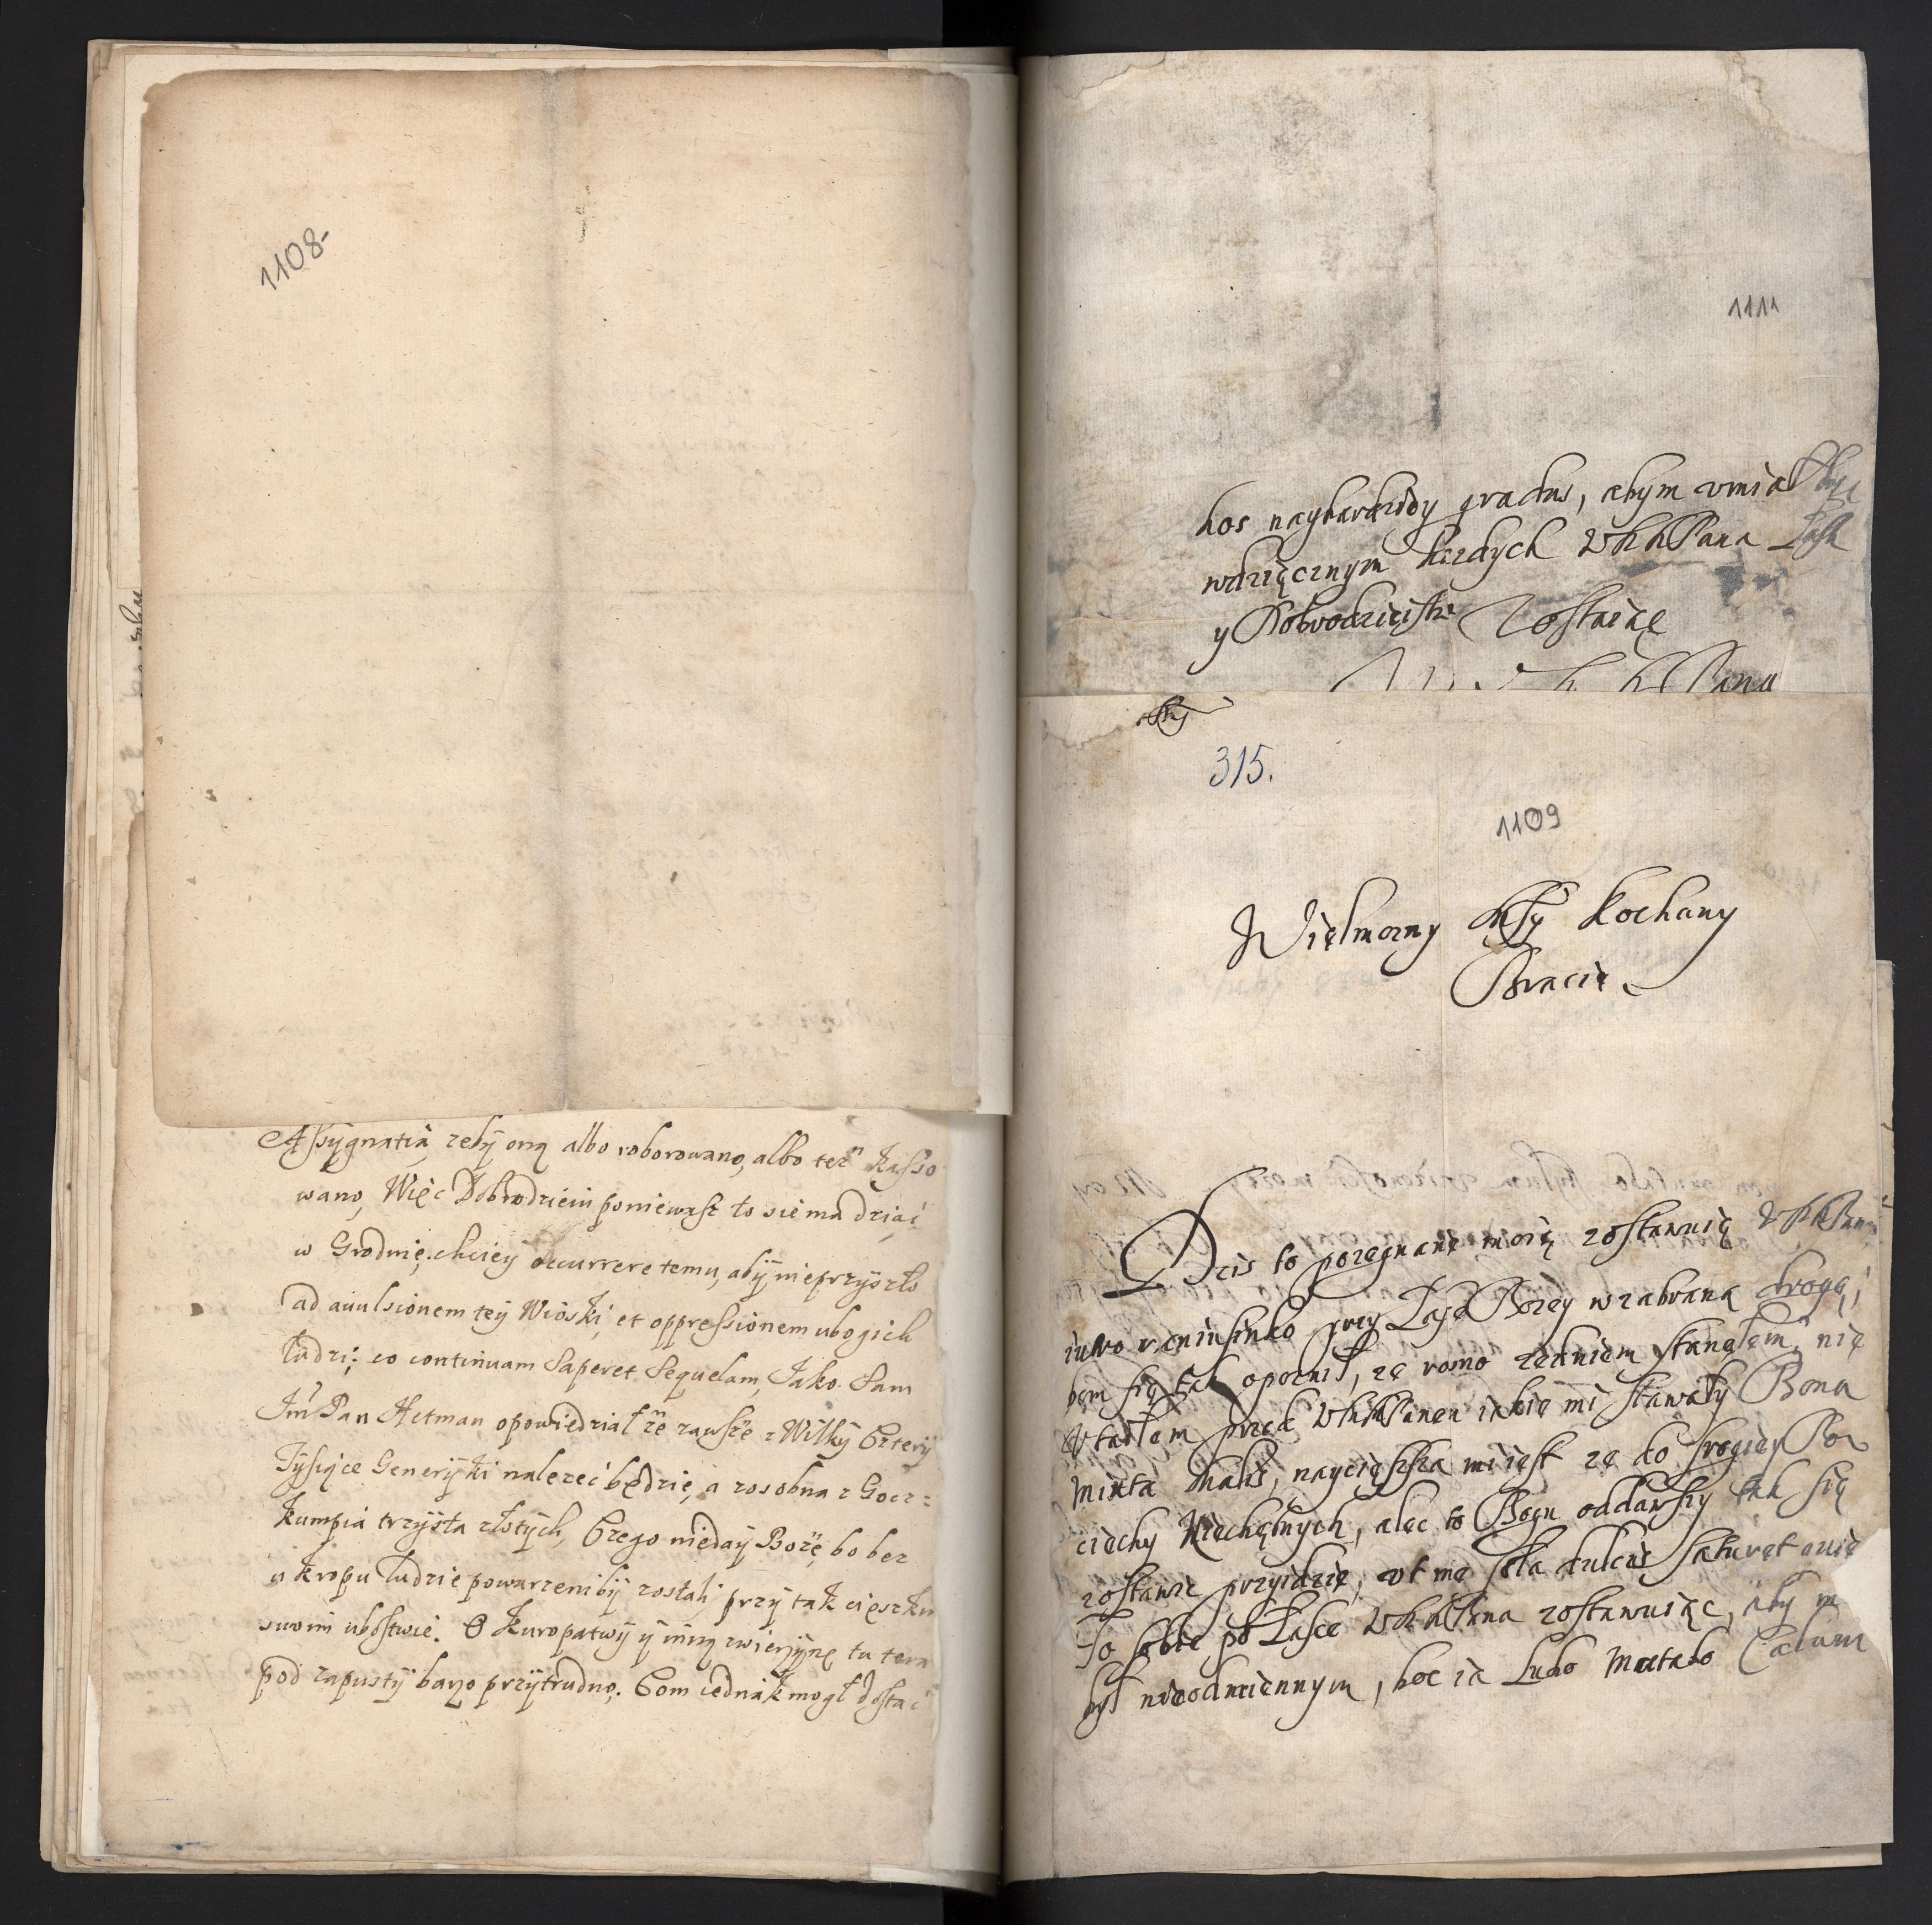 1108-
Assygnatią zeby oną albo roborowano, albo tez Kasso
wano, Więc Dobrodzieiu poniewasz to sie ma dziać
w Grodnie. chciey occurrere temu, aby nieprzyszło
ad avulsionem tey Wioski, et oppressionem ubogich
ludzi; co continuam saperet sequelam, Jako Sam
Jm Pan Hetman opowiedział ze zawsze z Wilky Cztery
Tysiące Generyki nalezeć będzie, a zosobna z Gocz=
kumpia trzysta złotych, Czego nieday Boze, bo bez
ukropu ludzie powarzeniby zostali przy tak cięszkim
swoim ubostwie. O Kuropatwy y inną zwierzynę tu teraz
pod zapusty barzo przytrudno. Com iednak mogł dostać
1111
hos naybardziey gradus, abym umiał
wdzięcznym kazdych WMMPana Łask
y Dobrodzieistw Zostaię
MPana
315.
1109
Wielmozny Mśy Kochany
Bracie.
Dzis to pozegnanę moię zostawuię WMMPanu
iutro raniusinko przy Łasce Bozey wzabraną drogę,
bom się tak opoznił, ze romo zedniem stanąłem, nie
Utaiłem przed WMMPanem iakie mi stawały Bona
mixta malis, naycięszsza mi iest ze do srogiey Po
ciechy Niechętnych, alec to Bogu oddawszy tak się
zostawic przyidzie, ut me sola dulcis saturet quies
To sobie po Łasce WMMPana zostawuiąc, abym
był nieodmiennym, boc ia Ludo mutabo Cælum